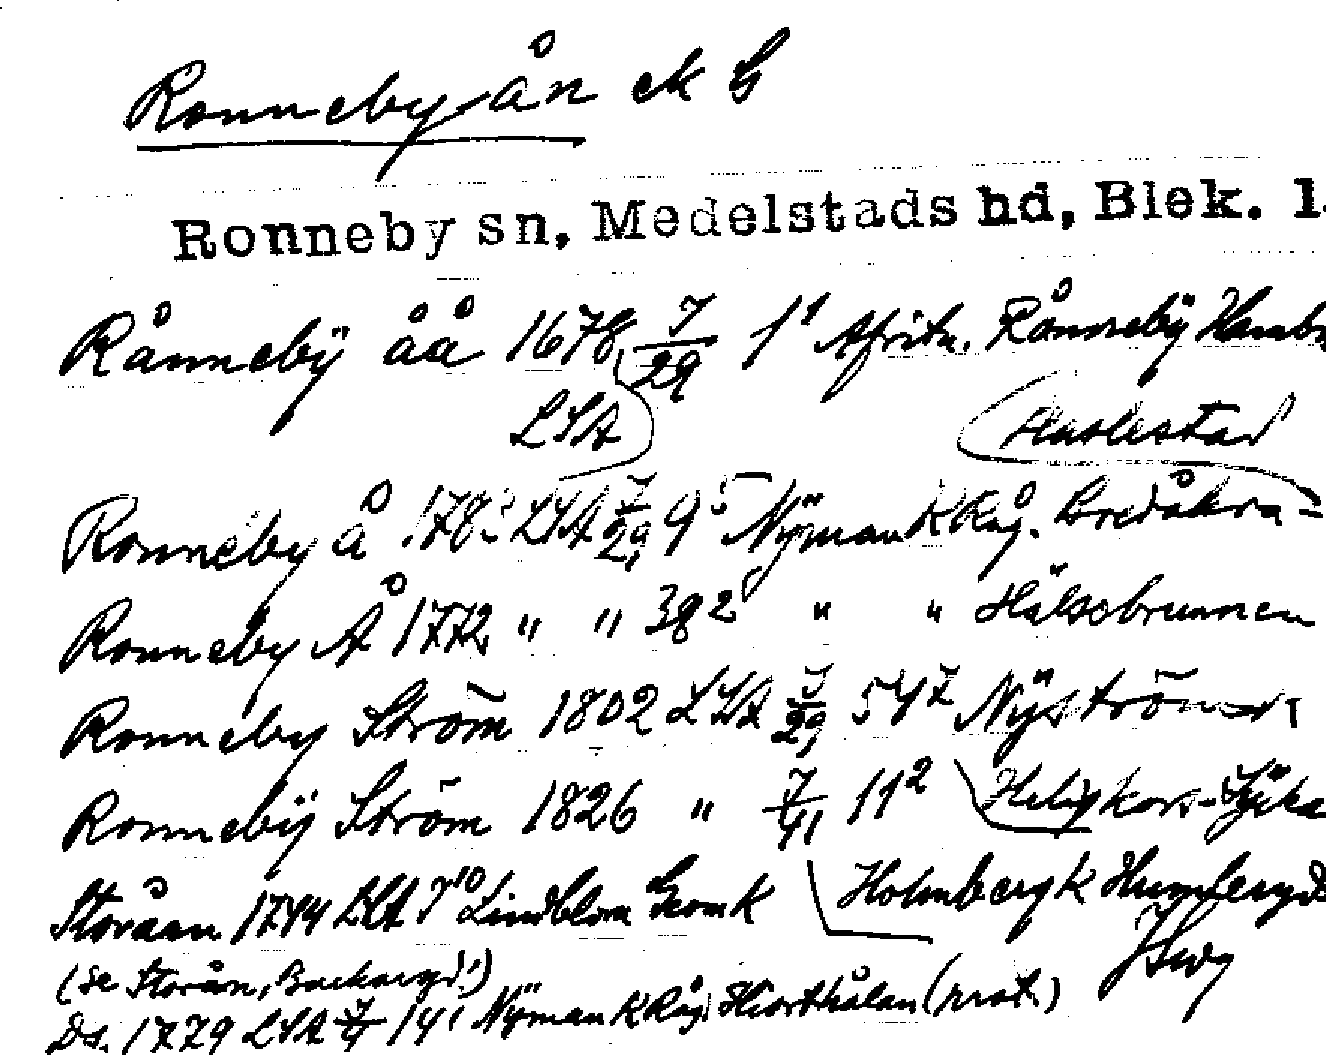 Ronneby ån ek G
Ronneby sn, Medelstads hd, Blek. l.
Rånnebÿ åå 1678 7/29 1¹ Afritn. Rånnebÿ Hamb
LSA Harlestad
Ronneby å 178 LSA 7/29 9⁵ Nÿman K Råg. Bredåkra
Ronneby Å 1772 " " 38² " " Hälsobrunnen
Ronneby Ström 1802 LSA 7/29 54⁷ Nÿström
Ronnebÿ Ström 1826 " 7/41 11² Heligkors-Sjuka
Storåen 1744 LSA 7¹⁰ Lindblom Geom K Holmberg K Humleryd
(se Storån, Backaryd!) JSwg
Ds. 1779 LSA 7/4 14¹ Nÿman K Råg. Hiorthålan (prot.)